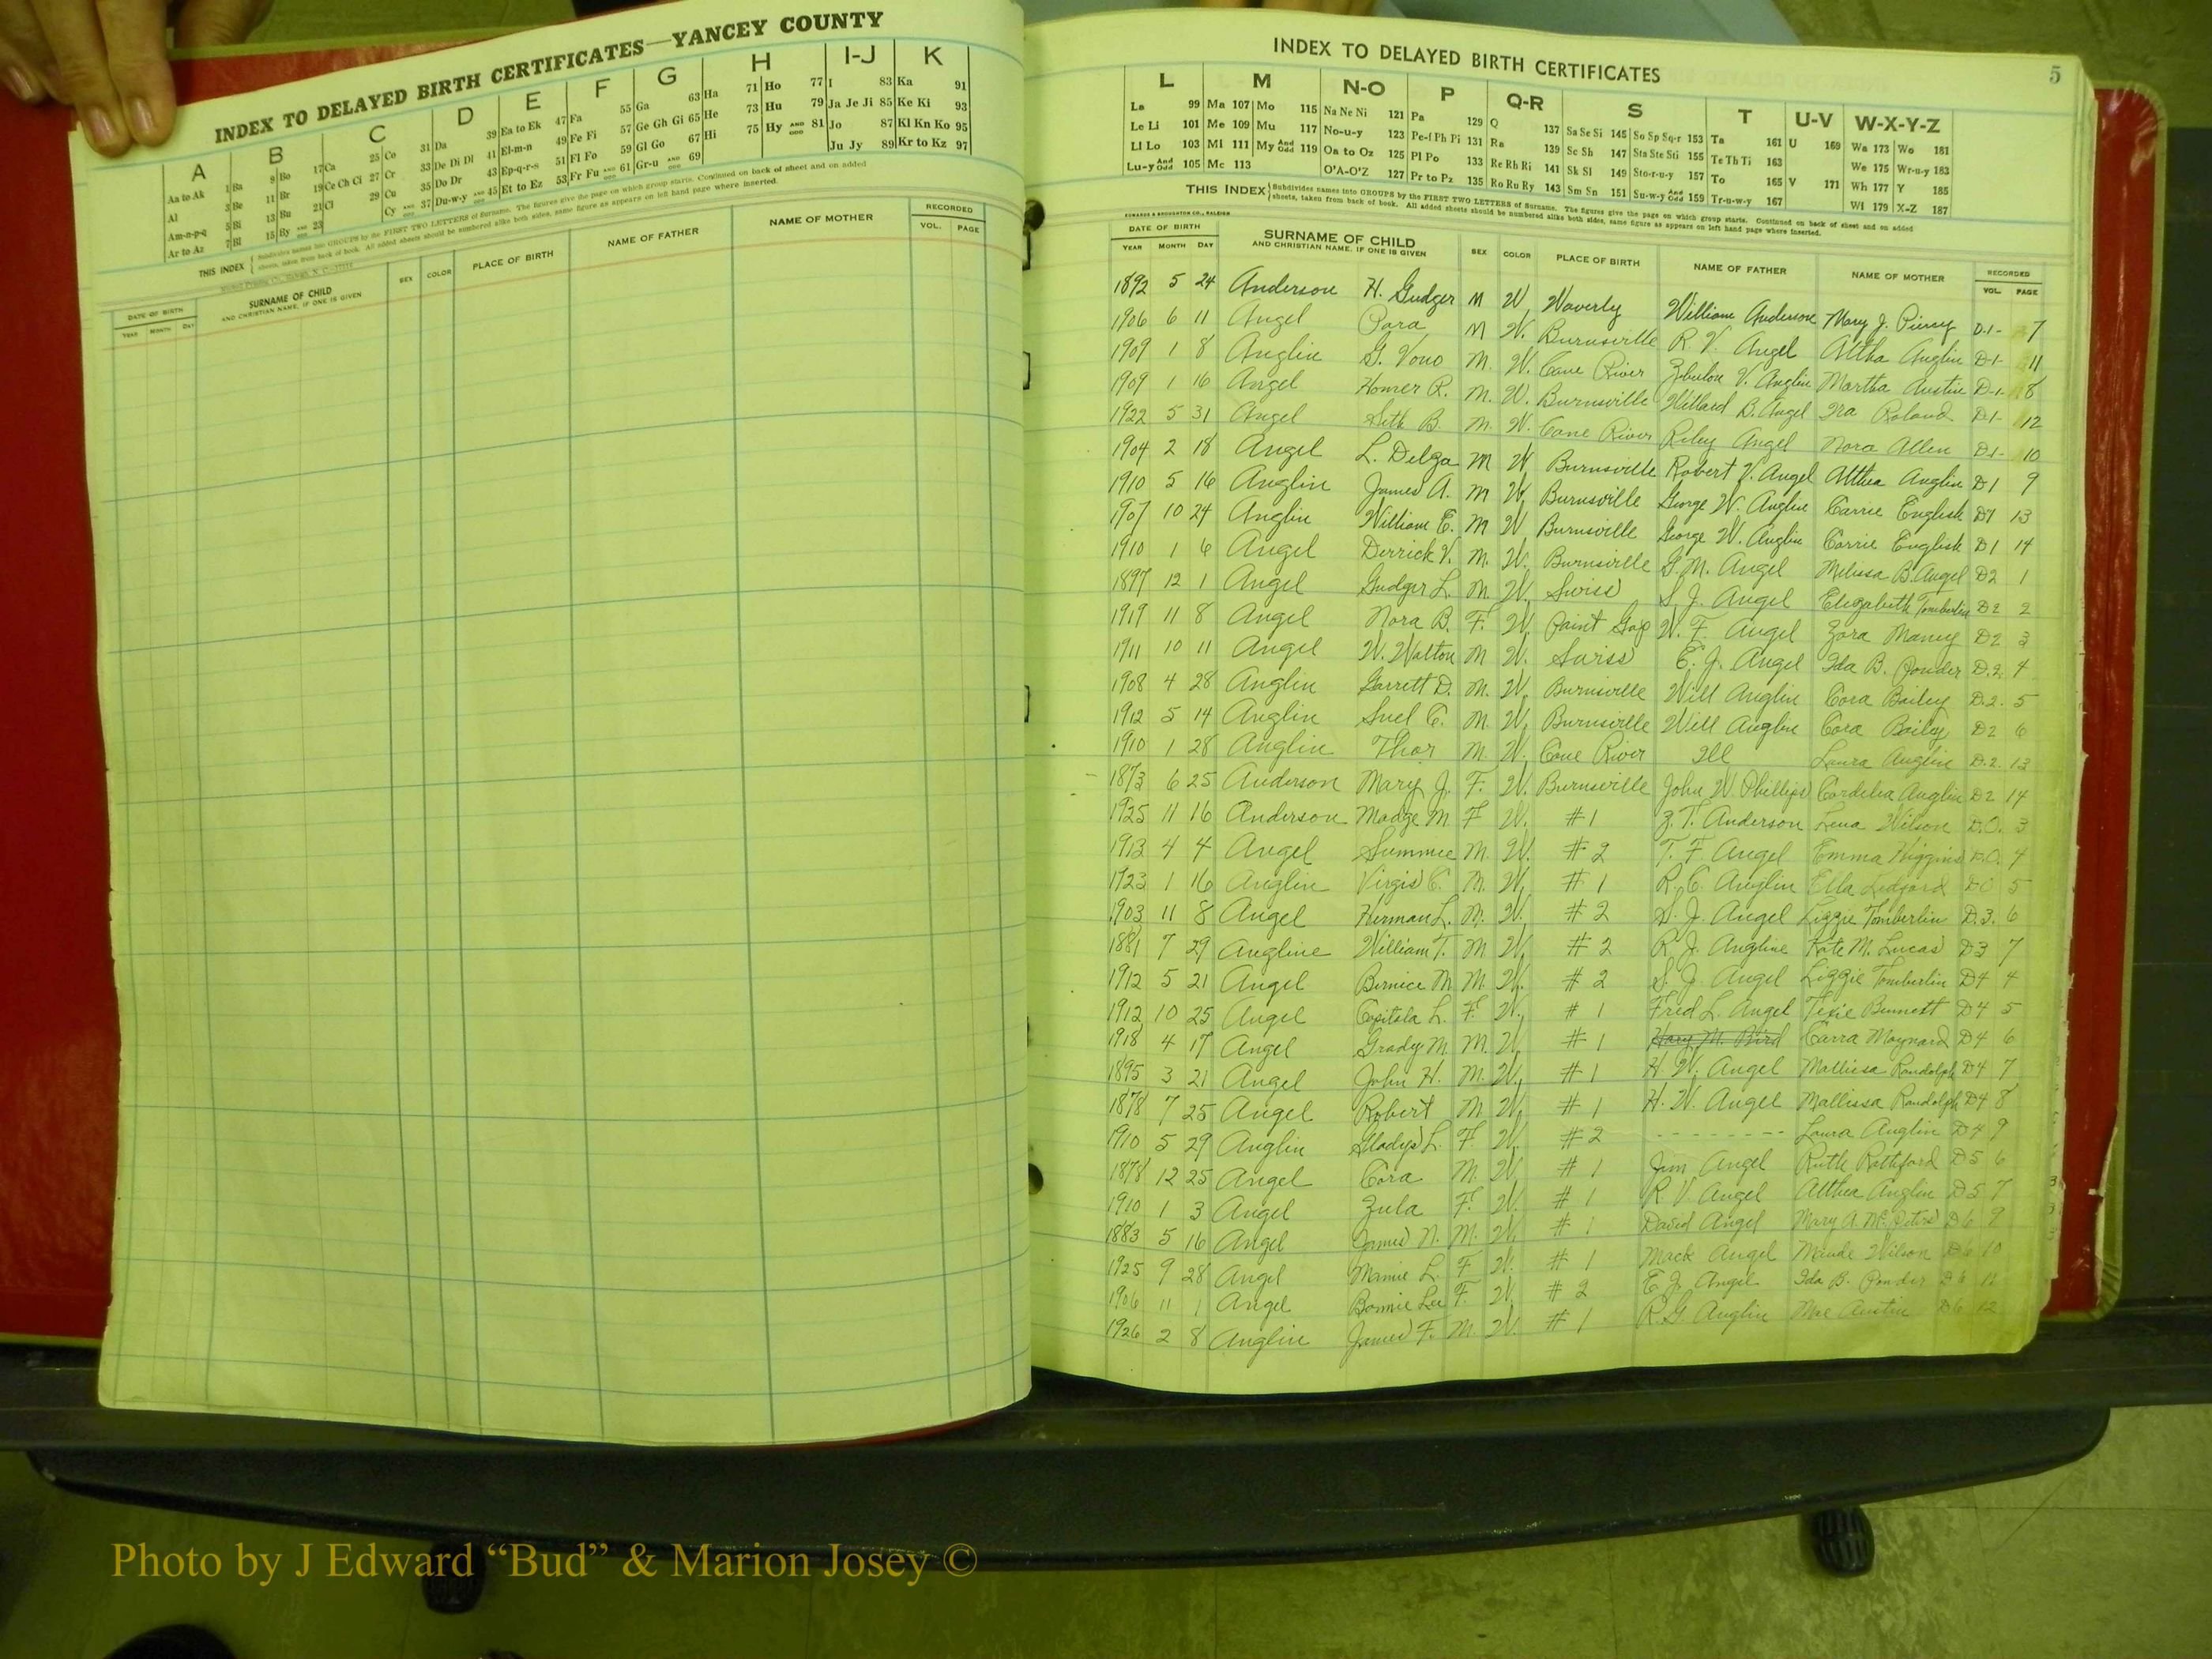 INDEX TO DELAYED BIRTH CERTIFICATES—YANCEY COUNTY
A B C D E F G H I-J K
Aa to Ak 1 Ba 9 Bo 17 Ca 25 Co 31 Da 39 Ea to Ek 47 Fa 55 Ga 63 Ha 71 Ho 77 I 83 Ka 91
Al 3 Be 11 Br 19 Ce Ch Ci 27 Cr 33 De Di Dl 41 El-m-n 49 Fe Fi 57 Ge Gh Gi 65 He 73 Hu 79 Ja Je Ji 85 Ke Ki 93
Am-n-p-q 5 Bi 13 Bu 21 Cl 29 Cu 35 Do Dr 43 Ep-q-r-s 51 Fl Fo 59 Gl Go 67 Hi 75 Hy AND ODD 81 Jo 87 Kl Kn Ko 95
Ar to Az 7 Bl 15 By AND ODD 23 Cy AND ODD 37 Du-w-y AND ODD 45 Et to Ez 53 Fr Fu AND ODD 61 Gr-u AND ODD 69 Ju Jy 89 Kr to Kz 97
THIS INDEX Subdivides names into GROUPS by the FIRST TWO LETTERS of Surname. The figures give the page on which group starts. Continued on back of sheet and on added
sheets, taken from back of book. All added sheets should be numbered alike both sides, same figure as appears on left hand page where inserted.
DATE OF BIRTH SURNAME OF CHILD SEX COLOR PLACE OF BIRTH NAME OF FATHER NAME OF MOTHER RECORDED
YEAR MONTH DAY AND CHRISTIAN NAME, IF ONE IS GIVEN VOL. PAGE
INDEX TO DELAYED BIRTH CERTIFICATES 5
L M N-O P Q-R S T U-V W-X-Y-Z
La 99 Ma 107 Mo 115 Na Ne Ni 121 Pa 129 Q 137 Sa Se Si 145 So Sp Sq-r 153 Ta 161 U 169 Wa 173 Wo 181
Le Li 101 Me 109 Mu 117 No-u-y 123 Pe-f Ph Pi 131 Ra 139 Sc Sh 147 Sta Ste Sti 155 Te Th Ti 163 We 175 Wr-u-y 183
Ll Lo 103 Mi 111 My And Odd 119 Oa to Oz 125 Pl Po 133 Re Rh Ri 141 Sk Sl 149 Sto-r-u-y 157 To 165 V 171 Wh 177 Y 185
Lu-y And Odd 105 Mc 113 O'A-O'Z 127 Pr to Pz 135 Ro Ru Ry 143 Sm Sn 151 Su-w-y And Odd 159 Tr-u-w-y 167 Wi 179 X-Z 187
THIS INDEX Subdivides names into GROUPS by the FIRST TWO LETTERS of Surname. The figures give the page on which group starts. Continued on back of sheet and on added
sheets, taken from back of book. All added sheets should be numbered alike both sides, same figure as appears on left hand page where inserted.
EDWARDS & BROUGHTON CO., RALEIGH
DATE OF BIRTH SURNAME OF CHILD SEX COLOR PLACE OF BIRTH NAME OF FATHER NAME OF MOTHER RECORDED
YEAR MONTH DAY AND CHRISTIAN NAME, IF ONE IS GIVEN VOL. PAGE
1892 5 24 Anderson H. Gudger M W. Waverly William Anderson Mary J. Piercy D.1- 7
1906 6 11 Angel Para M W. Burnsville R. V. Angel Altha Anglin D-1- 11
1909 1 8 Anglin G. Vono M. W. Cane River Zebulon V. Anglin Martha Austin D-1- 8
1909 1 16 Angel Homer R. M. W. Burnsville Willard B. Angel Ira Roland D1- 12
1922 5 31 Angel Seth B. M. W. Cane River Riley Angel Nora Allen D1- 10
1904 2 18 Angel L. Delga M W. Burnsville Robert V. Angel Althea Anglin D1 9
1910 5 16 Anglin James A. M W. Burnsville George W. Anglin Carrie English D1 13
1907 10 24 Anglin William E. M W Burnsville George W. Anglin Carrie English D1 14
1910 1 6 Angel Derrick V. M. W. Burnsville G. M. Angel Melissa B. Angel D2 1
1897 12 1 Angel Gudger L. M. W. Swiss S. J. Angel Elizabeth Tomberlin D2 2
1919 11 8 Angel Nora B. F. W. Paint Gap W. F. Angel Zora Maney D2 3
1911 10 11 Angel W. Walton M W. Swiss E. J. Angel Ida B. Ponder D.2. 4
1908 4 28 Anglin Garrett D. M. W. Burnsville Will Anglin Cora Bailey D.2. 5
1912 5 14 Anglin Suel C. M. W. Burnsville Will Anglin Cora Bailey D2 6
1910 1 28 Anglin Thor M. W. Cane River Ill Laura Anglin D.2. 13
1873 6 25 Anderson Mary J. F. W. Burnsville John W. Phillips Cordelia Anglin D2 14
1925 11 16 Anderson Madge M F W. #1 Z. T. Anderson Lena Wilson D.0. 3
1913 4 4 Angel Summie M. W. #2 T. F. Angel Emma Higgins D.0. 4
1923 1 16 Anglin Virgis C. M. W. #1 R. C. Anglin Ella Ledford D0 5
1903 11 8 Angel Herman L. M. W. #2 S. J. Angel Lizzie Tomberlin D.3. 6
1881 7 29 Angline William T. M W. #2 R. J. Angline Kate M. Lucas D3 7
1912 5 21 Angel Bernice M M. W. #2 S. J. Angel Lizzie Tomberlin D4 4
1912 10 25 Angel Capitola L. F. W. #1 Fred L. Angel Texie Bennett D4 5
1918 4 17 Angel Grady M. M. W. #1 Carra Maynard D4 6
1895 3 21 Angel John H. M. W. #1 H. W. Angel Mallissa Randolph D4 7
1878 7 25 Angel Robert M W. #1 H. W. Angel Mallissa Randolph D4 8
1910 5 29 Anglin Gladys L. F W. #2 - - - - - - - - Laura Anglin D4 9
1878 12 25 Angel Cora M. W. #1 Jim Angel Ruth Rathford D5 6
1910 1 3 Angel Zula F. W. #1 R V. Angel Althea Anglin D5 7
1883 5 16 Angel James N. M. W. #1 David Angel Mary A. McPeters D6 9
1925 9 28 Angel Mamie L. F W. #1 Mack Angel Maude Wilson D6 10
1906 11 1 Angel Bonnie Lee F. W. #2 E J. Angel Ida B. Ponder D6 11
1926 2 8 Anglin James F. M. W. #1 R. G. Anglin Mae Austin D6 12
Photo by J Edward “Bud” & Marion Josey ©